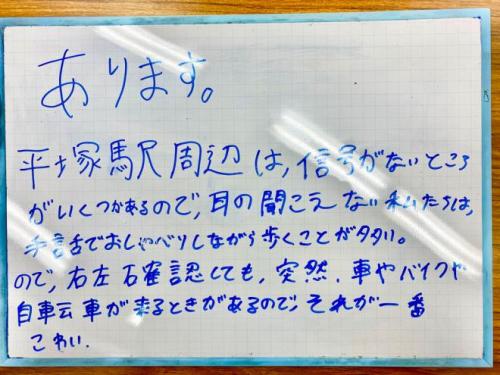 あります。
平塚駅周辺は、信号がないところ
がいくつかあるので、耳の聞こえない私たちは、
手話でおしゃべりしながら歩くことが多い。
ので、右左確認しても、突然、車やバイクや
自転車が来るときがあるので、それが一番
こわい.